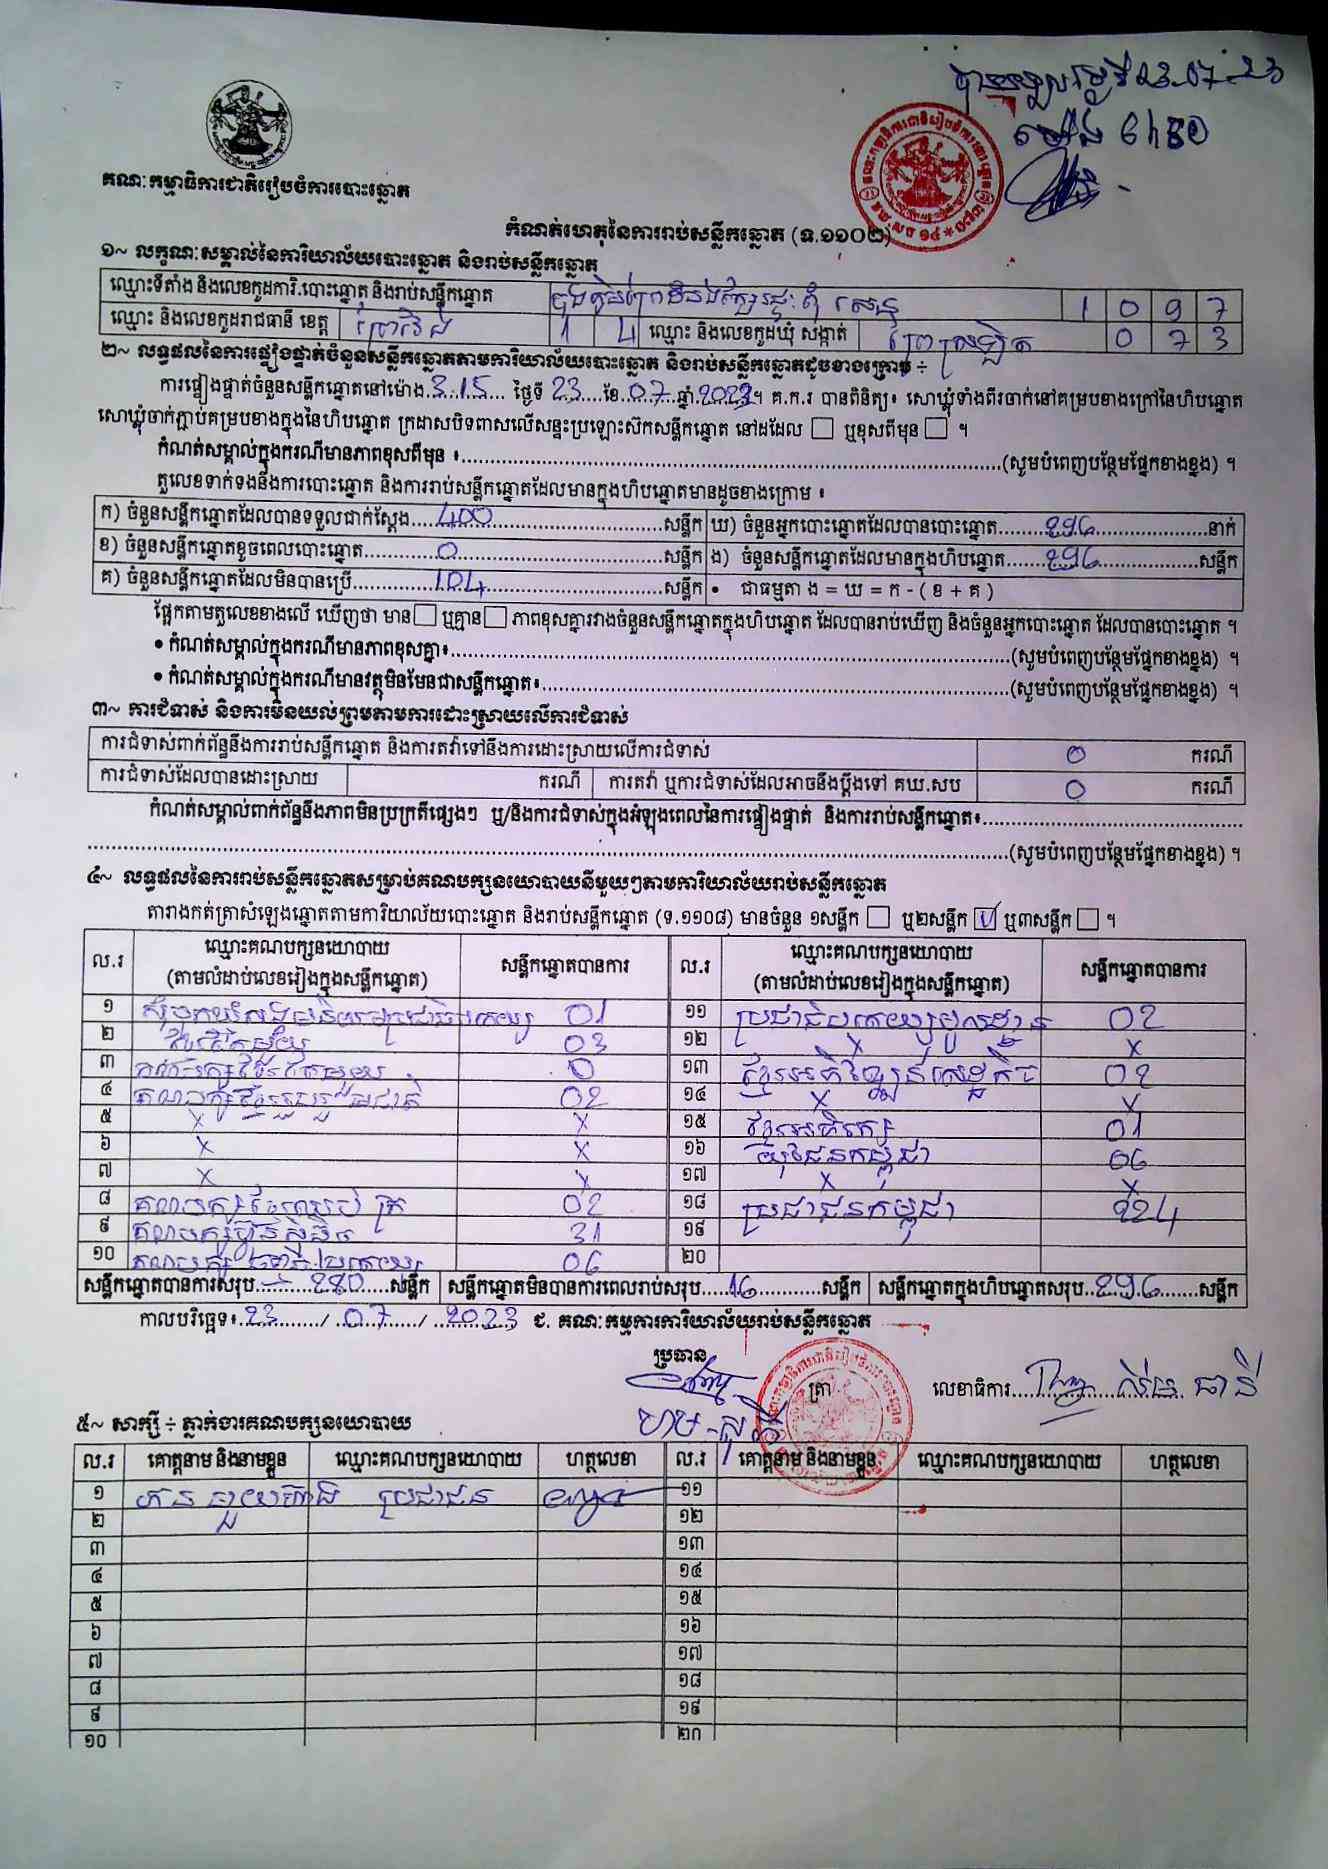 បានទទួល ថ្ងៃទី 23.07.23
ម៉ោង 6h30
គណៈកម្មាធិការជាតិរៀបចំការបោះឆ្នោត
កំណត់ហេតុនៃការរាប់សន្លឹកឆ្នោត (ទ.១១០២)
១~ លក្ខណៈសម្គាល់នៃការិយាល័យបោះឆ្នោត និងរាប់សន្លឹកឆ្នោត
ឈ្មោះទីតាំង និងលេខកូដការិ.បោះឆ្នោត និងរាប់សន្លឹកឆ្នោត 1 0 9 7
ឈ្មោះ និងលេខកូដរាជធានី ខេត្ត ព្រៃវែង 1 4 ឈ្មោះ និងលេខកូដឃុំ សង្កាត់ ព្រៃស្រឡិត 0 7 3
២~ លទ្ធផលនៃការផ្ទៀងផ្ទាត់ចំនួនសន្លឹកឆ្នោតតាមការិយាល័យបោះឆ្នោត និងរាប់សន្លឹកឆ្នោតដូចខាងក្រោម ÷
ការផ្ទៀងផ្ទាត់ចំនួនសន្លឹកឆ្នោតនៅម៉ោង.3.15.... ថ្ងៃទី 23....ខែ.07....ឆ្នាំ.2023។ គ.ក.រ បានពិនិត្យ៖ សោឃ្លុំទាំងពីរចាក់នៅគម្របខាងក្រៅនៃហិបឆ្នោត
សោឃ្លុំចាក់ភ្ជាប់គម្របខាងក្នុងនៃហិបឆ្នោត ក្រដាសបិទពាសលើសន្ទះប្រឡោះស៊កសន្លឹកឆ្នោត នៅដដែល □ ឬខុសពីមុន □ ។
កំណត់សម្គាល់ក្នុងករណីមានភាពខុសពីមុន ៖....................(សូមបំពេញបន្ថែមផ្នែកខាងខ្នង) ។
តួលេខទាក់ទងនឹងការបោះឆ្នោត និងការរាប់សន្លឹកឆ្នោតដែលមានក្នុងហិបឆ្នោតមានដូចខាងក្រោម ៖
ក) ចំនួនសន្លឹកឆ្នោតដែលបានទទួលជាក់ស្តែង....400....សន្លឹក ឃ) ចំនួនអ្នកបោះឆ្នោតដែលបានបោះឆ្នោត....296....នាក់
ខ) ចំនួនសន្លឹកឆ្នោតខូចពេលបោះឆ្នោត....0....សន្លឹក ង) ចំនួនសន្លឹកឆ្នោតដែលមានក្នុងហិបឆ្នោត....296....សន្លឹក
គ) ចំនួនសន្លឹកឆ្នោតដែលមិនបានប្រើ....104....សន្លឹក • ជាធម្មតា ង = ឃ = ក - ( ខ + គ )
ផ្អែកតាមតួលេខខាងលើ ឃើញថា មាន □ ឬគ្មាន □ ភាពខុសគ្នារវាងចំនួនសន្លឹកឆ្នោតក្នុងហិបឆ្នោត ដែលបានរាប់ឃើញ និងចំនួនអ្នកបោះឆ្នោត ដែលបានបោះឆ្នោត ។
• កំណត់សម្គាល់ក្នុងករណីមានភាពខុសគ្នា៖....................(សូមបំពេញបន្ថែមផ្នែកខាងខ្នង) ។
• កំណត់សម្គាល់ក្នុងករណីមានវត្ថុមិនមែនជាសន្លឹកឆ្នោត៖....................(សូមបំពេញបន្ថែមផ្នែកខាងខ្នង) ។
៣~ ការជំទាស់ និងការមិនយល់ព្រមតាមការដោះស្រាយលើការជំទាស់
ការជំទាស់ពាក់ព័ន្ធនឹងការរាប់សន្លឹកឆ្នោត និងការតវ៉ាទៅនឹងការដោះស្រាយលើការជំទាស់ 0 ករណី
ការជំទាស់ដែលបានដោះស្រាយ ករណី ការតវ៉ា ឬការជំទាស់ដែលអាចនឹងប្តឹងទៅ គឃ.សប 0 ករណី
កំណត់សម្គាល់ពាក់ព័ន្ធនឹងភាពមិនប្រក្រតីផ្សេងៗ ឬ/និងការជំទាស់ក្នុងអំឡុងពេលនៃការផ្ទៀងផ្ទាត់ និងការរាប់សន្លឹកឆ្នោត៖....................
....................(សូមបំពេញបន្ថែមផ្នែកខាងខ្នង) ។
៤~ លទ្ធផលនៃការរាប់សន្លឹកឆ្នោតសម្រាប់គណបក្សនយោបាយនីមួយៗតាមការិយាល័យរាប់សន្លឹកឆ្នោត
តារាងកត់ត្រាសំឡេងឆ្នោតតាមការិយាល័យបោះឆ្នោត និងរាប់សន្លឹកឆ្នោត (ទ.១១០៨) មានចំនួន ១សន្លឹក □ ឬ២សន្លឹក ☑ ឬ៣សន្លឹក □ ។
ល.រ ឈ្មោះគណបក្សនយោបាយ (តាមលំដាប់លេខរៀងក្នុងសន្លឹកឆ្នោត) សន្លឹកឆ្នោតបានការ ល.រ ឈ្មោះគណបក្សនយោបាយ (តាមលំដាប់លេខរៀងក្នុងសន្លឹកឆ្នោត) សន្លឹកឆ្នោតបានការ
១ 01 ១១ ប្រជាធិបតេយ្យមូលដ្ឋាន 02
២ 03 ១២ x x
៣ 0 ១៣ ខ្មែរអភិវឌ្ឍន៍សេដ្ឋកិច្ច 02
៤ គណបក្សខ្មែររួបរួមជាតិ 02 ១៤ x x
៥ x x ១៥ ខ្មែរអភិរក្ស 01
៦ x x ១៦ យុវជនកម្ពុជា 06
៧ x x ១៧ x x
៨ 02 ១៨ ប្រជាជនកម្ពុជា 224
៩ គណបក្សហ៊្វុនស៊ិនប៉ិច 31 ១៩
១០ 06 ២០
សន្លឹកឆ្នោតបានការសរុប....280....សន្លឹក សន្លឹកឆ្នោតមិនបានការពេលរាប់សរុប....16....សន្លឹក សន្លឹកឆ្នោតក្នុងហិបឆ្នោតសរុប..296....សន្លឹក
កាលបរិច្ឆេទ៖.23......../ ..07...../ ..2023 ជ. គណៈកម្មការការិយាល័យរាប់សន្លឹកឆ្នោត
ប្រធាន
ត្រា លេខាធិការ....................
៥~ សាក្សី ÷ ភ្នាក់ងារគណបក្សនយោបាយ
ល.រ គោត្តនាម និងនាមខ្លួន ឈ្មោះគណបក្សនយោបាយ ហត្ថលេខា ល.រ គោត្តនាម និងនាមខ្លួន ឈ្មោះគណបក្សនយោបាយ ហត្ថលេខា
១ ប្រជាជន ១១
២ ១២
៣ ១៣
៤ ១៤
៥ ១៥
៦ ១៦
៧ ១៧
៨ ១៨
៩ ១៩
១០ ២០